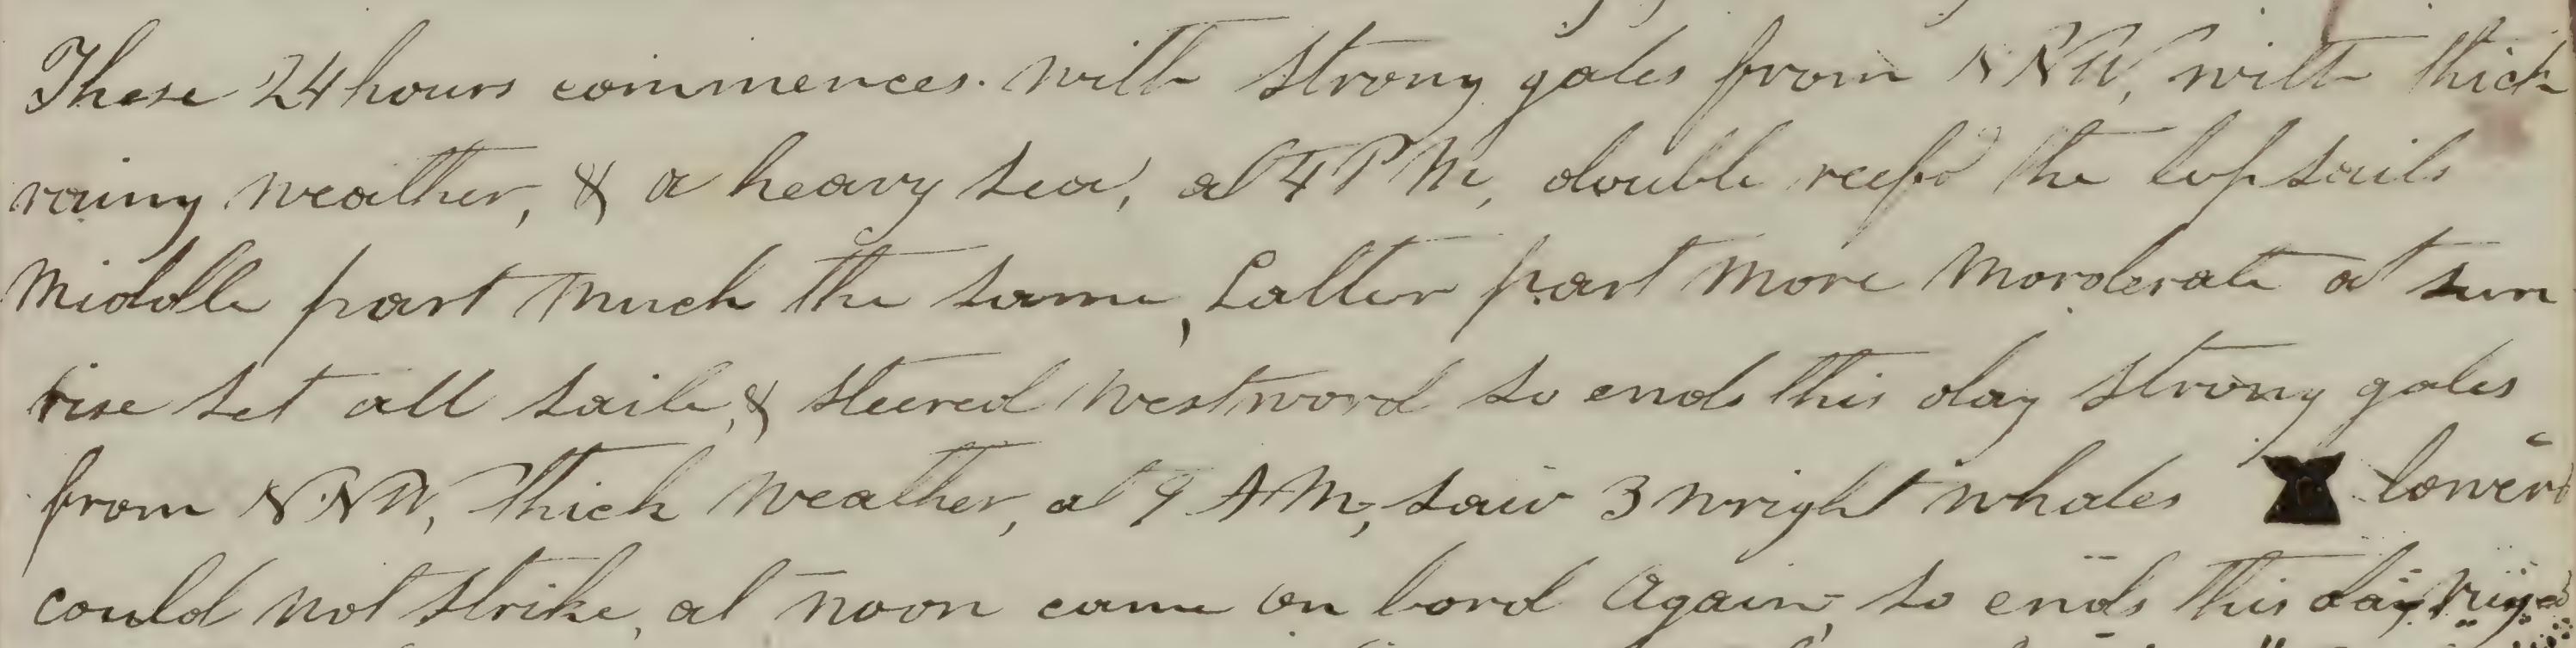 These 24 hours commences. with strong gales from NNW, with thick
rainy weather, & a heavy sea, at 4 PM, double reefd the topsails
Middle part much the same, Latter part more morderate at sun
rise set all sail, & steered westword so ends this day strong gales
from NNW, thick weather, at 9 AM, saw 3 wright whales lowerd
could not strike, at noon came on bord Again, so ends this day